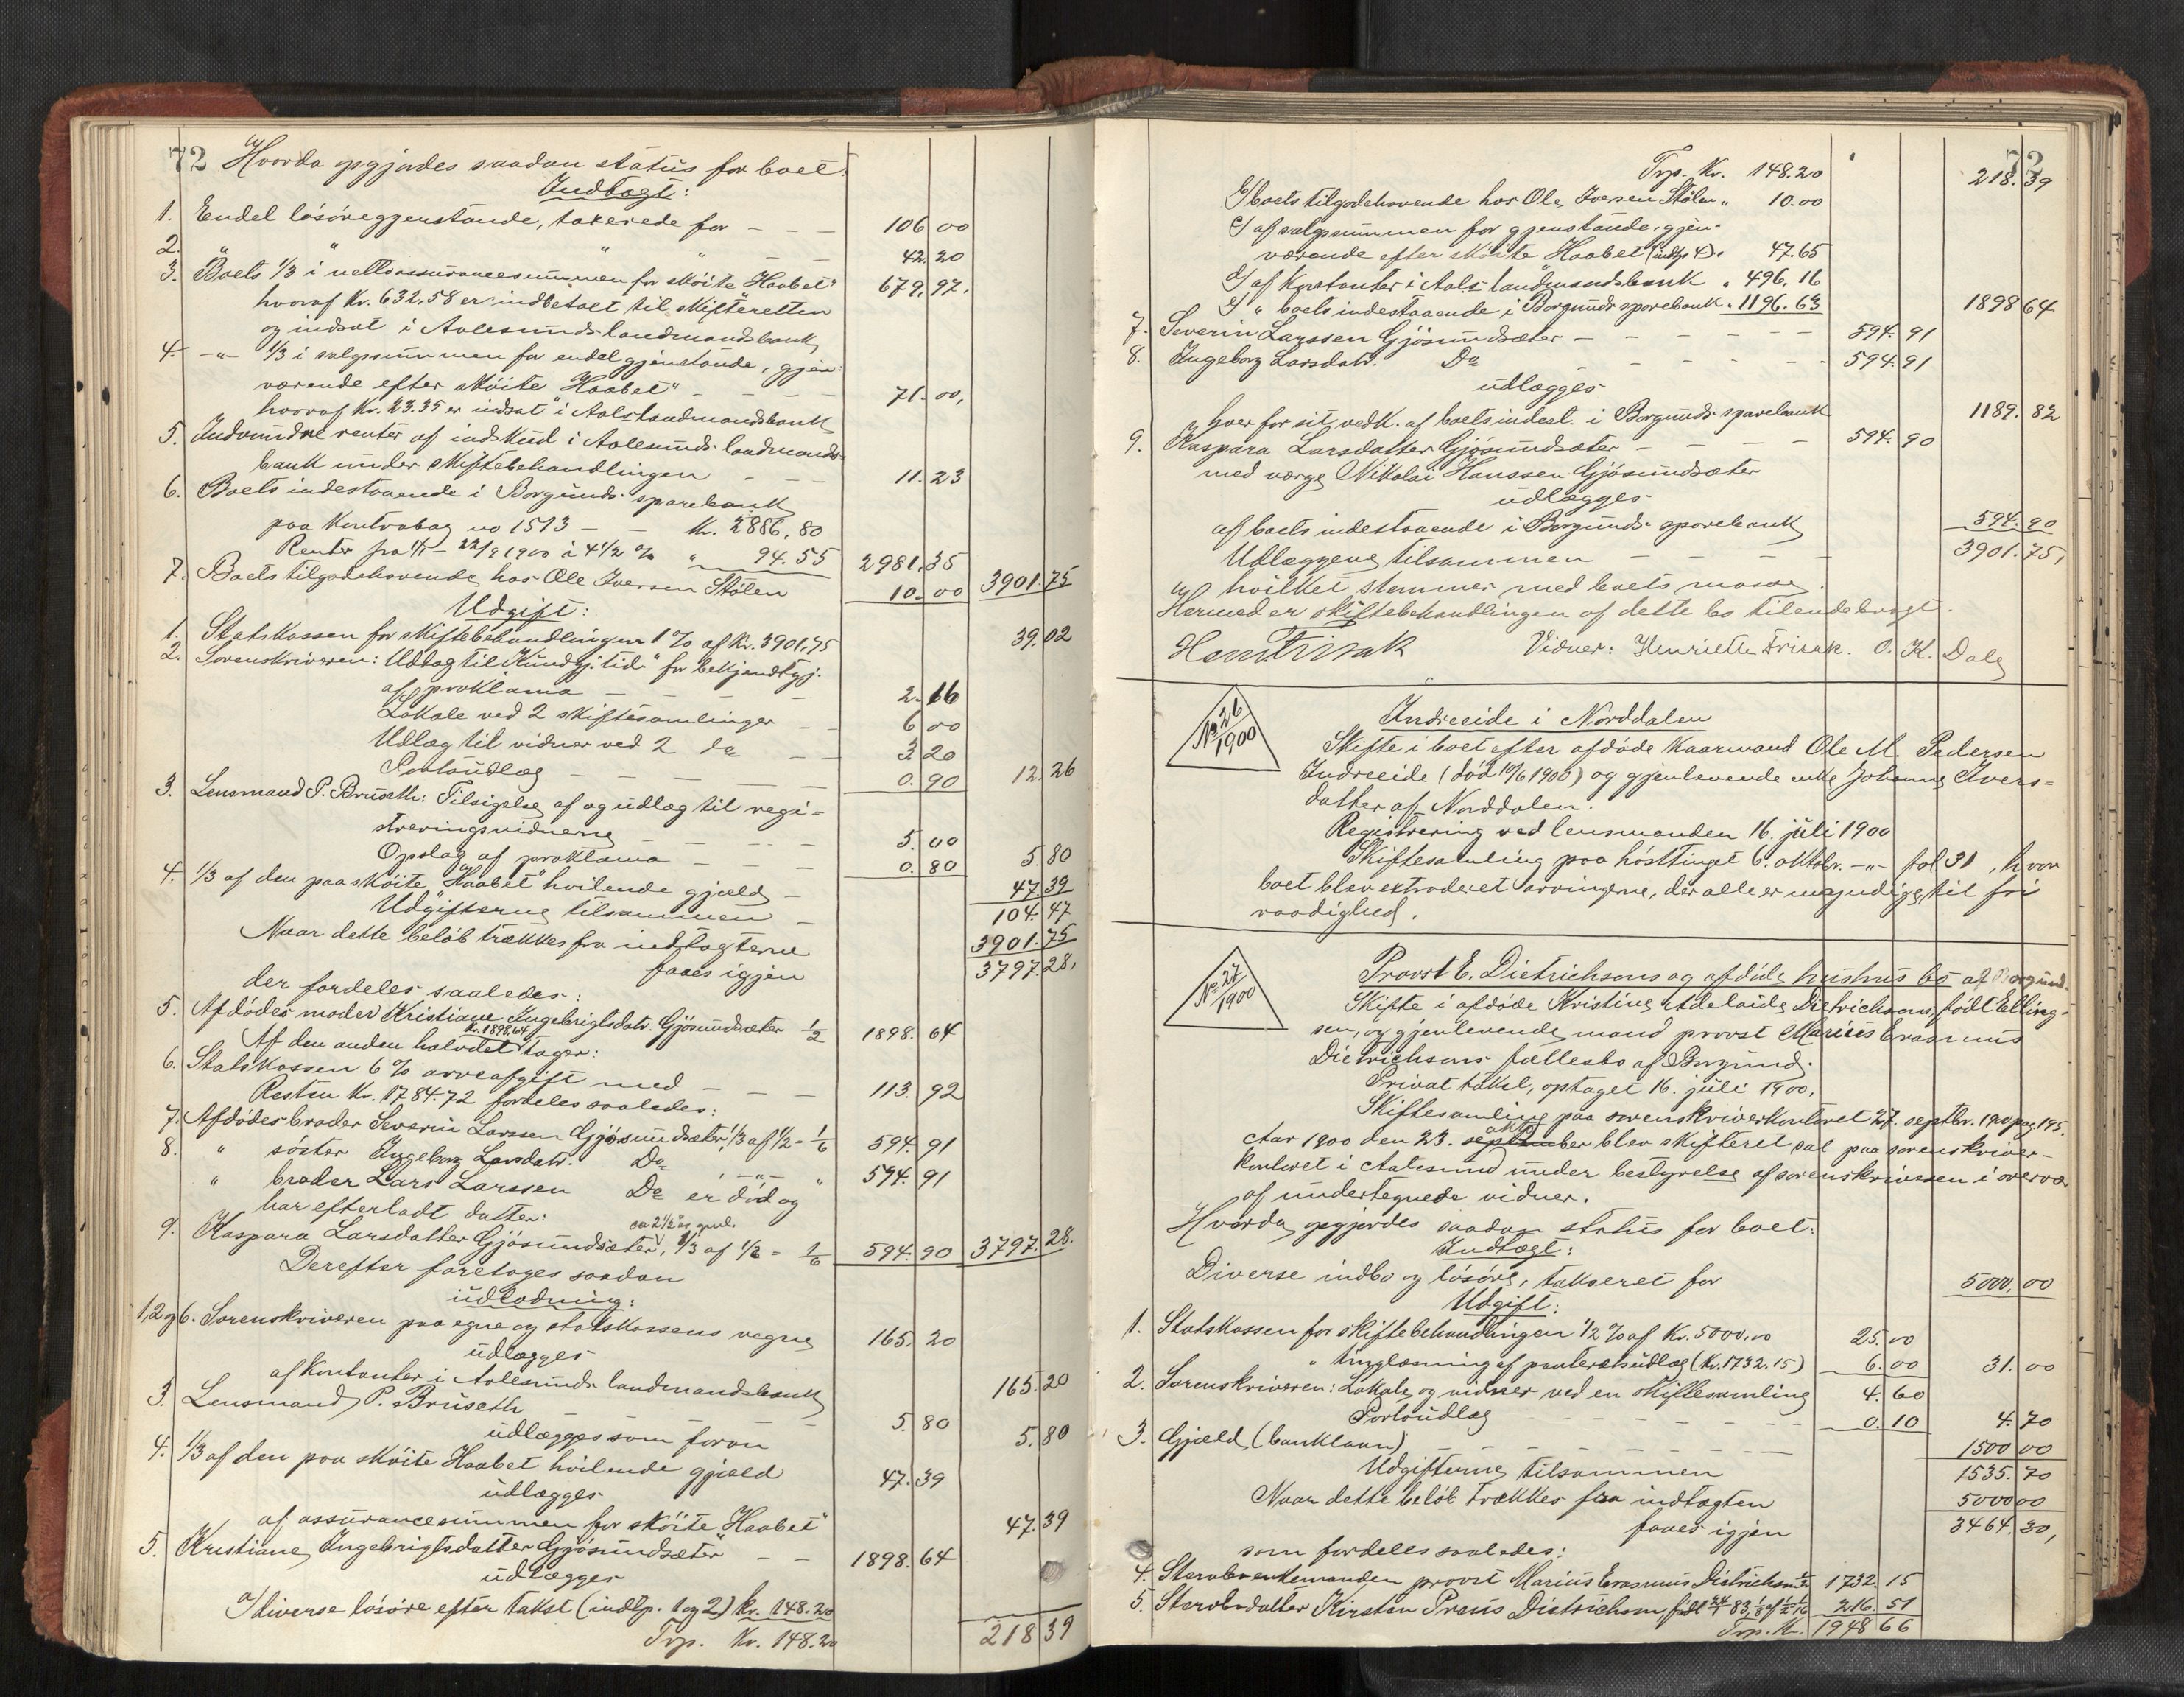 72 Hvorda opgjordes saadan status for boet:
Indtægt:
1. Endel løsøregjenstande, takerede for - - - 106 00
2. " " " - - 42.20
3. Boets 1/3 i nettoassurancesummen for skøite "Haabet" 679.97.
hvoraf Kr. 632.58 er indbetalt til skifteretten
og indsat i Aalesunds landmandsbank
4. -"- 1/3 i salgssummen for endel gjenstande, gjen-
værende efter skøite "Haabet" - - - - 71.00,
hvoraf Kr. 23.35 er indsat i Aals landmandsbank
5. Indvundne renter af indskud i Aalesunds landmands-
bank under skiftebehandlingen - - - 11.23
6. Boets indestaaende i Borgunds sparebank
paa Kontrabog no 1513 - - Kr. 2886,80
Renter fra 1/1 - 22/9 1900 à 4 1/2 % " 94.55 2981.35
7. Boets tilgodehavende hos Ole Iversen Stølen 10.00 3901.75
Udgift:
1. Statskassen for skiftebehandlingen 1 % af Kr. 3901,75 39.02
2. Sorenskriveren: Udlæg til "Kundgj.tid." for bekjendtgj.
af proklama - - - - 2.16
Lokale ved 2 skiftesamlinger - - 6 00
Udlæg til vidner ved 2 do - - 3 20
Portoudlæg - - - - 0.90 12.26
3. Lensmand P. Bruseth: Tilsigelse af og udlæg til regi-
streringsvidnerne - - - - 5.00
Opslag af proklama - - - 0.80 5.80
4. 1/3 af den paa skøite "Haabet" hvilende gjæld - 47 39
Udgifterne tilsammen - 104.47
Naar dette beløb trækkes fra indtægterne 3901.75
faaes igjen 3797.28,
der fordeles saaledes:
5. Afdødes moder Kristiane Ingebrigtsdatr. Gjøsundsæter 1/2 1898.64
Af den anden halvdel Kr. 1898,64 tager:
6. Statskassen 6 % arveafgift med - - - 113.92
Resten Kr. 1784.72 fordeles saaledes:
7. Afdødes broder Severin Larssen Gjøsundsæter, 1/3 af 1/2 = 1/6 594.91
8. " søster Ingeborg Larsdatr. Do -"- " 594.91
" broder Lars Larssen Do er død og
har efterladt datter:
9. Kaspara Larsdatter Gjøsundsæter, ca 2 1/2 år gml. 1/3 af 1/2 = 1/6 594.90 3797.28.
Derefter foretoges saadan
udlodning:
1,2 og 6. Sorenskriveren paa egne og statskassens vegne 165.20
udlægges
af kontanter i Aalesunds landmandsbank 165.20
3. Lensmand P. Bruseth - - - 5.80
udlægges som foran 5.80
4. 1/3 af den paa skøite Haabet hvilende gjæld 47.39
udlægges
af assurancesummen for skøite "Haabet" 47.39
5. Kristiane Ingebrigtsdatter Gjøsundsæter - - 1898.64
udlægges
I diverse løsøre efter takst (indtp. 1 og 2) Kr. 148.20
Trp. Kr. 148.20 218 39
73
Trp. Kr. 148.20 218.39
I boets tilgodehavende hos Ole Iversen Stølen " 10.00
I af salgssummen for gjenstande, gjen-
værende efter skøite Haabet (indtp 4) " 47.65
I af kontanter i Aals landmandsbank " 496.16
I " boets indestaaende i Borgunds sparebank " 1196.63 1898 64
7. Severin Larssen Gjøsundsæter - - - - - 594.91
8. Ingeborg Larsdatr. Do - - - - 594.91
udlægges
hver for sit vedk. af boets indest. i Borgunds sparebank 1189.82
9. Kaspara Larsdatter Gjøsundsæter - - - 594.90
med værge Nikolai Hanssen Gjøsundsæter
udlægges
af boets indestaaende i Borgunds sparebank 594.90
Udlæggene tilsammen - - - - 3901.75,
hvilket stemmer med boets masse.
Hermed er skiftebehandlingen af dette bo tilendebragt.
Vidner: Henriette Frisak. O. K. Dale
No 26/1900
Indreeide i Norddalen
Skifte i boet efter afdøde Kaarmand Ole M. Pedersen
Indreeide (død 10/6 1900) og gjenlevende enke Johanne Ivers-
datter af Norddalen.
Registrering ved lensmanden 16. juli 1900
Skiftesamling paa høsttinget 6. oktobr. -"- fol 31, hvor
boet blev extraderet arvingerne, der alle er myndige, til fri
raadighed.
No 27/1900
Provst E. Dietrichsons og afdøde hustrus bo af Borgund.
Skifte i afdøde Kristine Adelaide Dietrichsons, født Elling-
sen, og gjenlevende mand provst Marius Erasmus
Dietrichsons fællesbo af Borgund.
Privat takst, optaget 16. juli 1900.
Skiftesamling paa sorenskriverkontoret 27. septbr. 1900 pag. 195.
Aar 1900 den 23. oktober blev skifteret sat paa sorenskriver-
kontoret i Aalesund under bestyrelse af sorenskriveren i overvær
af undertegnede vidner.
Hvorda opgjordes saadan status for boet:
Indtægt:
Diverse indbo og løsøre, takseret for 5000,00
Udgift:
1. Statskassen for skiftebehandlingen 1/2 % af Kr. 5000,00 25.00
" tinglæsning af panteretsudlæg (Kr. 1732.15) 6.00 31.00
2. Sorenskriveren: Lokale og vidner ved en skiftesamling 4.60
Portoudlæg - - - - - - 0.10 4.70
3. Gjæld (banklaan) - - - - - - 1500 00
Udgifterne tilsammen 1535.70
Naar dette beløb trækkes fra indtægten 5000 00
faaes igjen 3464.30,
som fordeles saaledes:
4. Stervboenkemanden provst Marius Erasmus Dietrichson 1/2 1732.15
5. Stervbodatter Kirsten Preus Dietrichson, født 24/1 83, 1/8 af 1/2 = 1/16 216.51
Trp. Kr. 1948 66